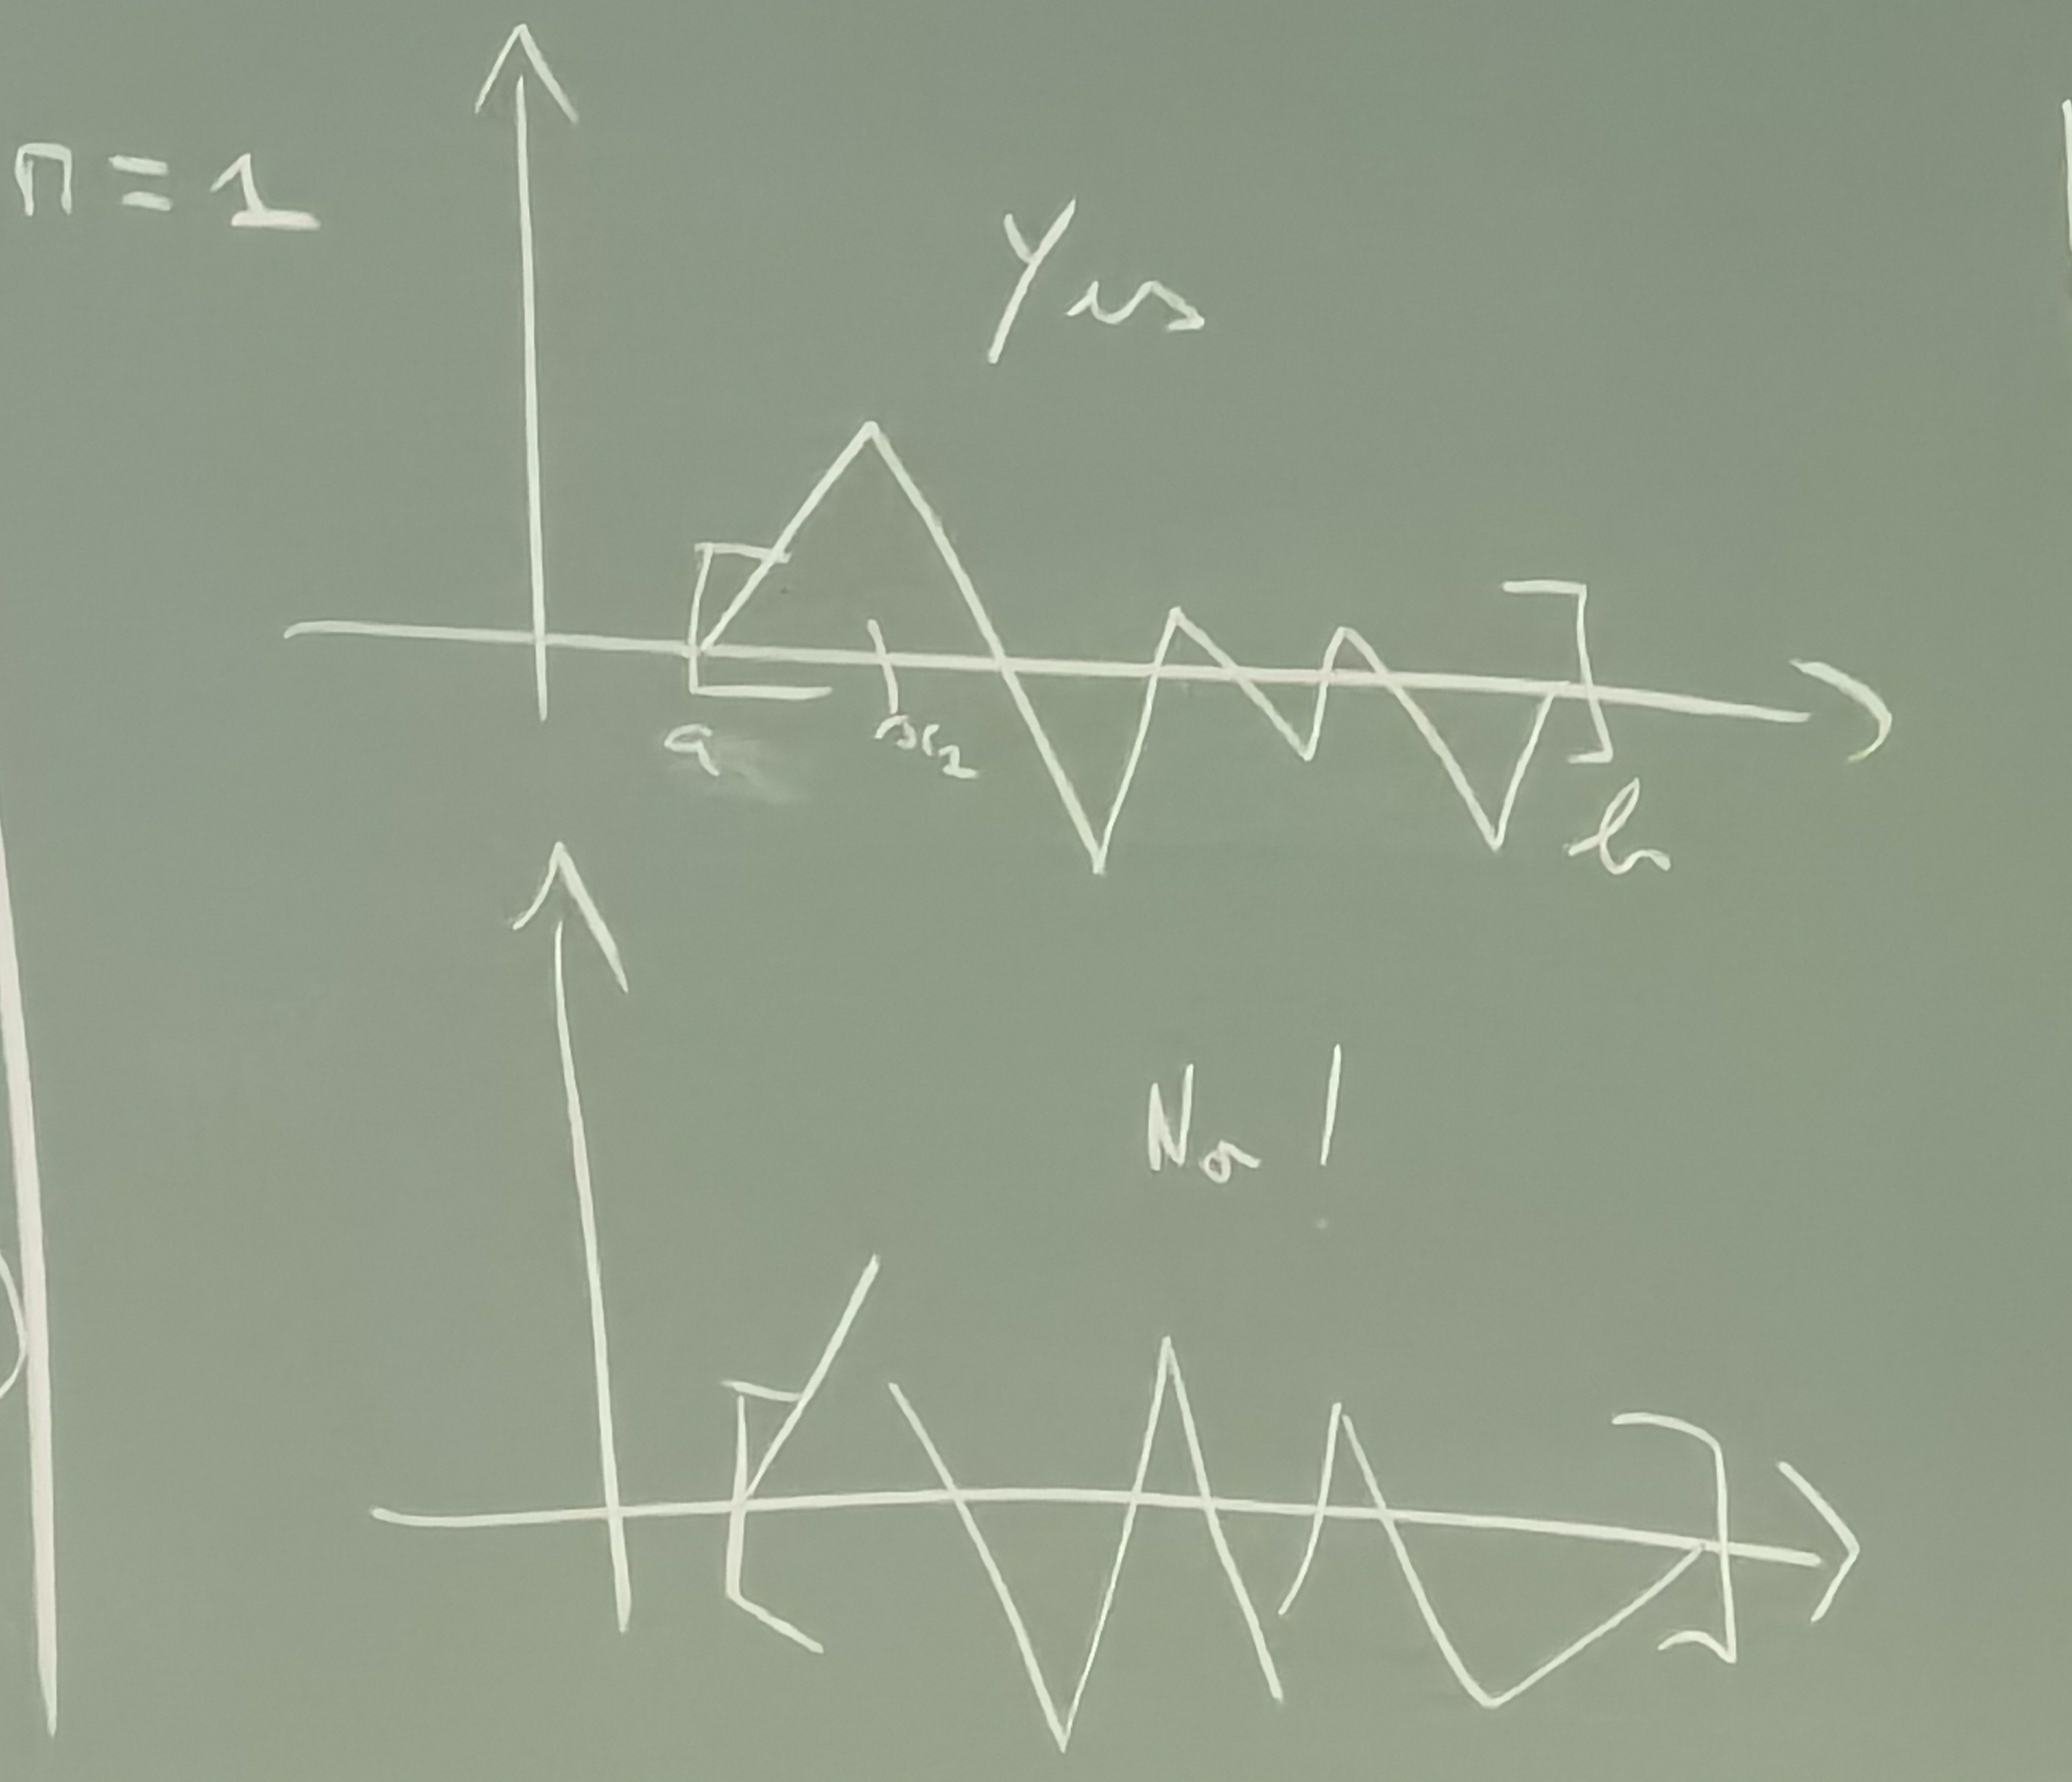 n = 1
Yes
a
x₂
b
No !